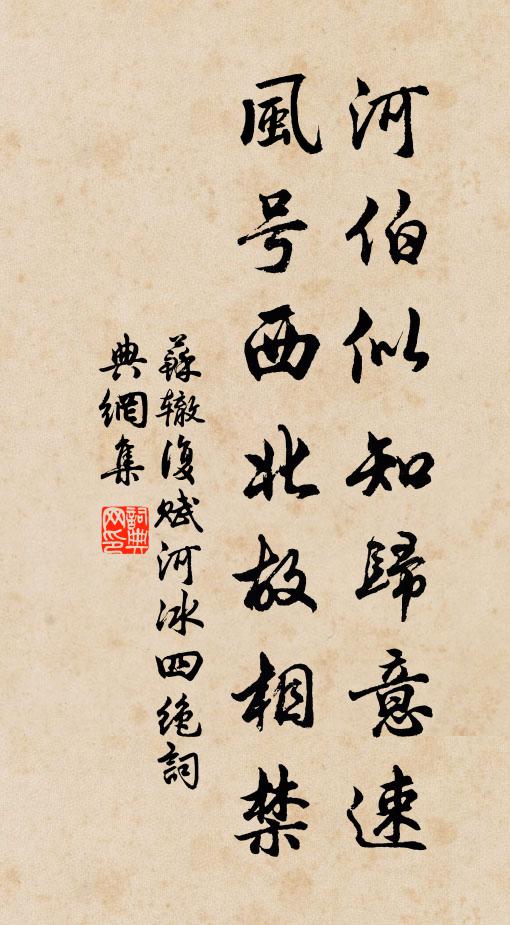 河伯似知歸意速
風号西北故相禁
蘇辙復赋河冰四绝詞
典網集
詞典网印